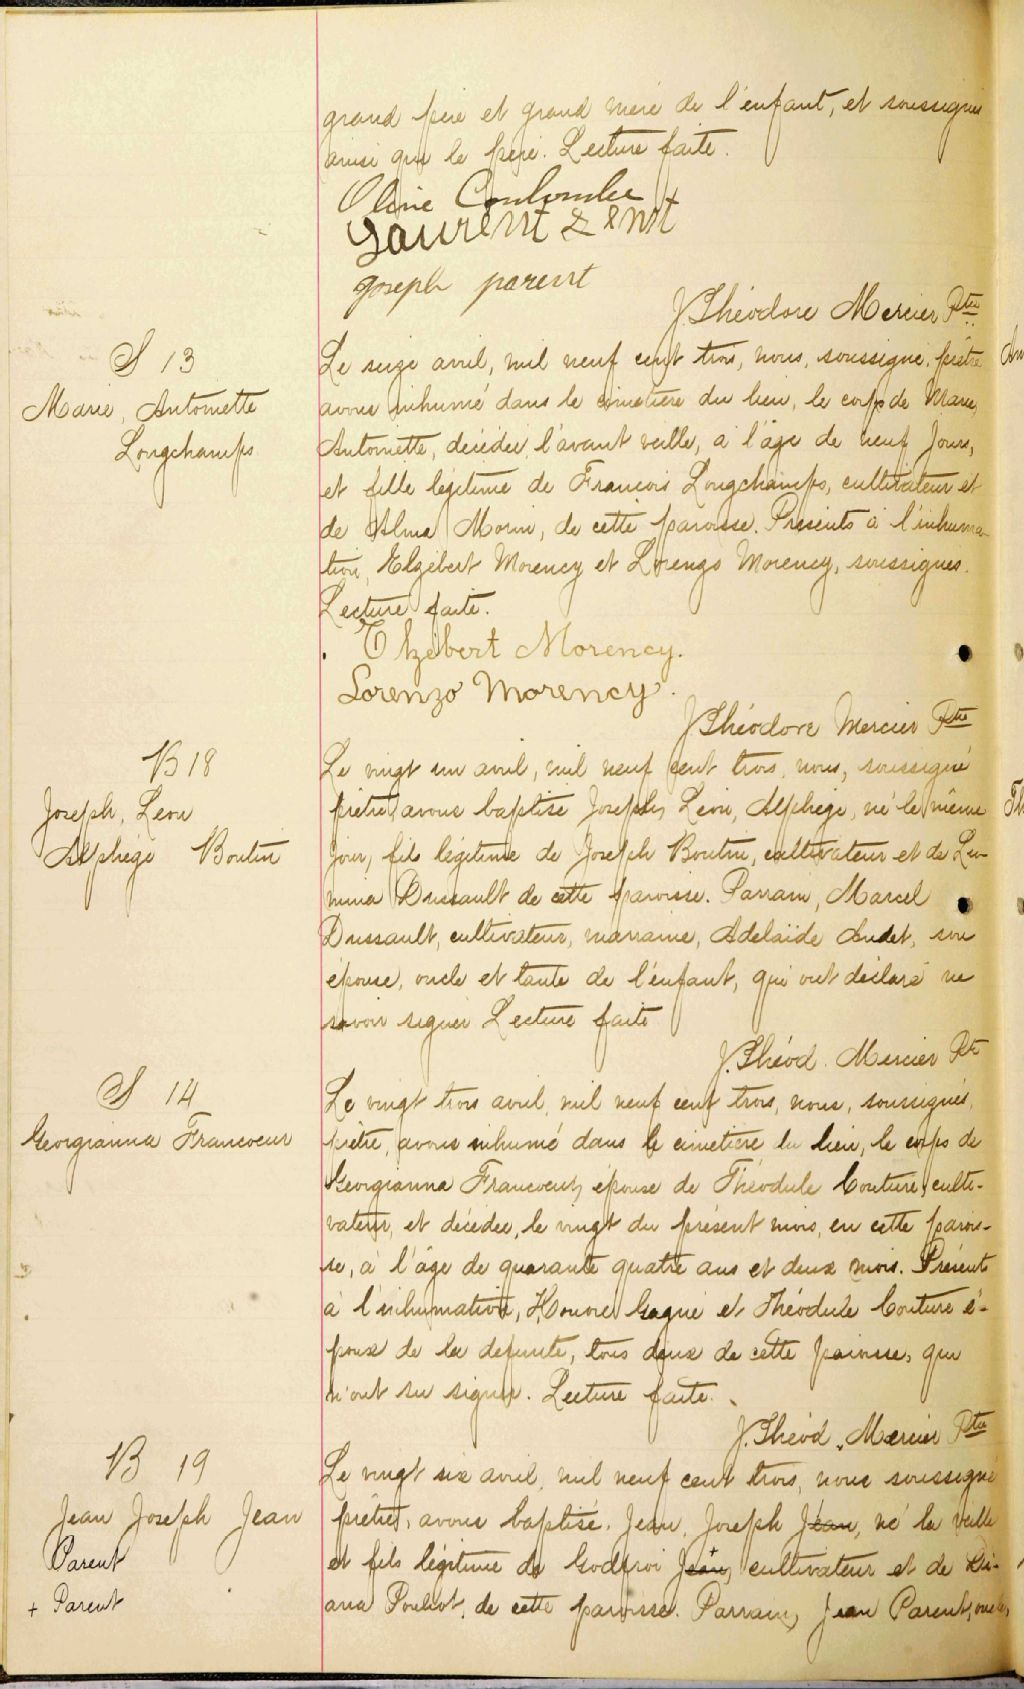 grand père et grand mère de l'enfant, et soussignés
ainsi que le père. Lecture faite.
Olivie Coulombe
Laurent
Joseph parent
J. Théodore Mercier Ptre
S 13
Marie, Antoinette
Longchamps
Le seize avril, mil neuf cent trois, nous, soussigné, prêtre
avons inhumé dans le cimetière du lieu, le corps de Marie,
Antoinette, décédée, l'avant veille, à l'âge de neuf jours,
et fille légitime de Francois Longchamps, cultivateur et
de Alma Morin, de cette paroisse. Présents à l'inhuma-
tion, Elzébert Morency et Lorenzo Morency, soussignés.
Lecture faite.
Elzébert Morency.
Lorenzo Morency.
J Théodore Mercier Ptre
B 18
Joseph, Léon
Alphège Boutin
Le vingt un avril, mil neuf cent trois, nous, soussigné
prêtre, avons baptisé Joseph, Léon, Alphège, né le même
jour, fils légitime de Joseph Boutin, cultivateur et de
Dussault de cette paroisse. Parrain, Marcel
Dussault, cultivateur, marraine, Adélaïde Audet, son
épouse, oncle et tante de l'enfant, qui ont déclaré ne
savoir signer Lecture faite
J. Théod. Mercier Ptr
S 14
Georgianna Francoeur
Le vingt trois avril, mil neuf cent trois, nous, soussignés,
prêtre, avons inhumé dans le cimetière du lieu, le corps de
Georgianna Francoeur, épouse de Théodule Couture, culti-
vateur, et décédée, le vingt du présent mois, en cette parois-
se, à l'âge de quarante quatre ans et deux mois. Présents
à l'inhumation, Honoré Gagné et Théodule Couture é-
poux de la défunte, tous deux de cette paroisse, qui
n'ont su signer. Lecture faite.
J. Théod. Mercier Ptre
B 19
Jean Joseph Jean
Parent
+ Parent
Le vingt six avril, mil neuf cent trois, nous soussigné
prêtre, avons baptisé. Jean, Joseph Jean, né la veille
et fils légitime de Godfroi Jean, cultivateur et de Di-
ana Pouliot, de cette paroisse. Parrain, Jean Parent, oncle,